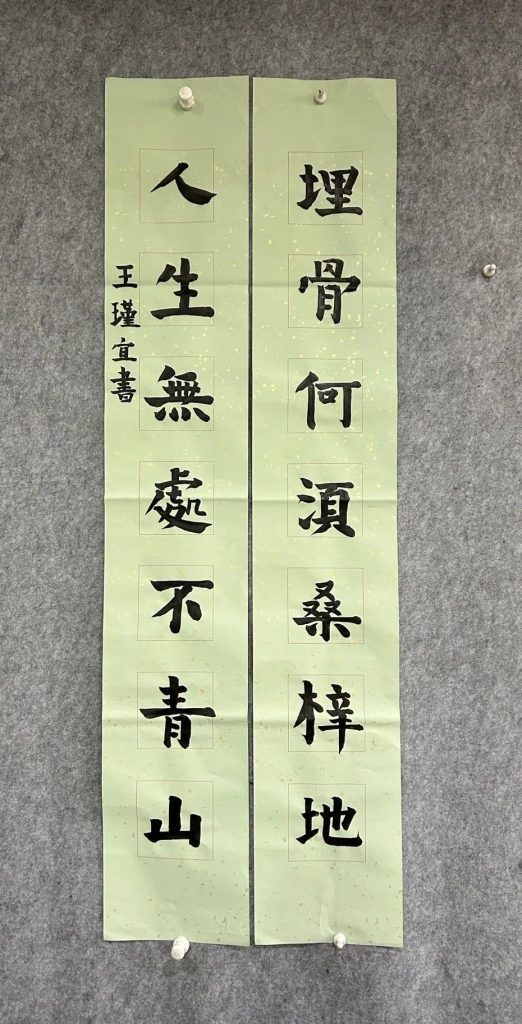 埋骨何湏桑梓地
人生無處不青山
王瑾宜書